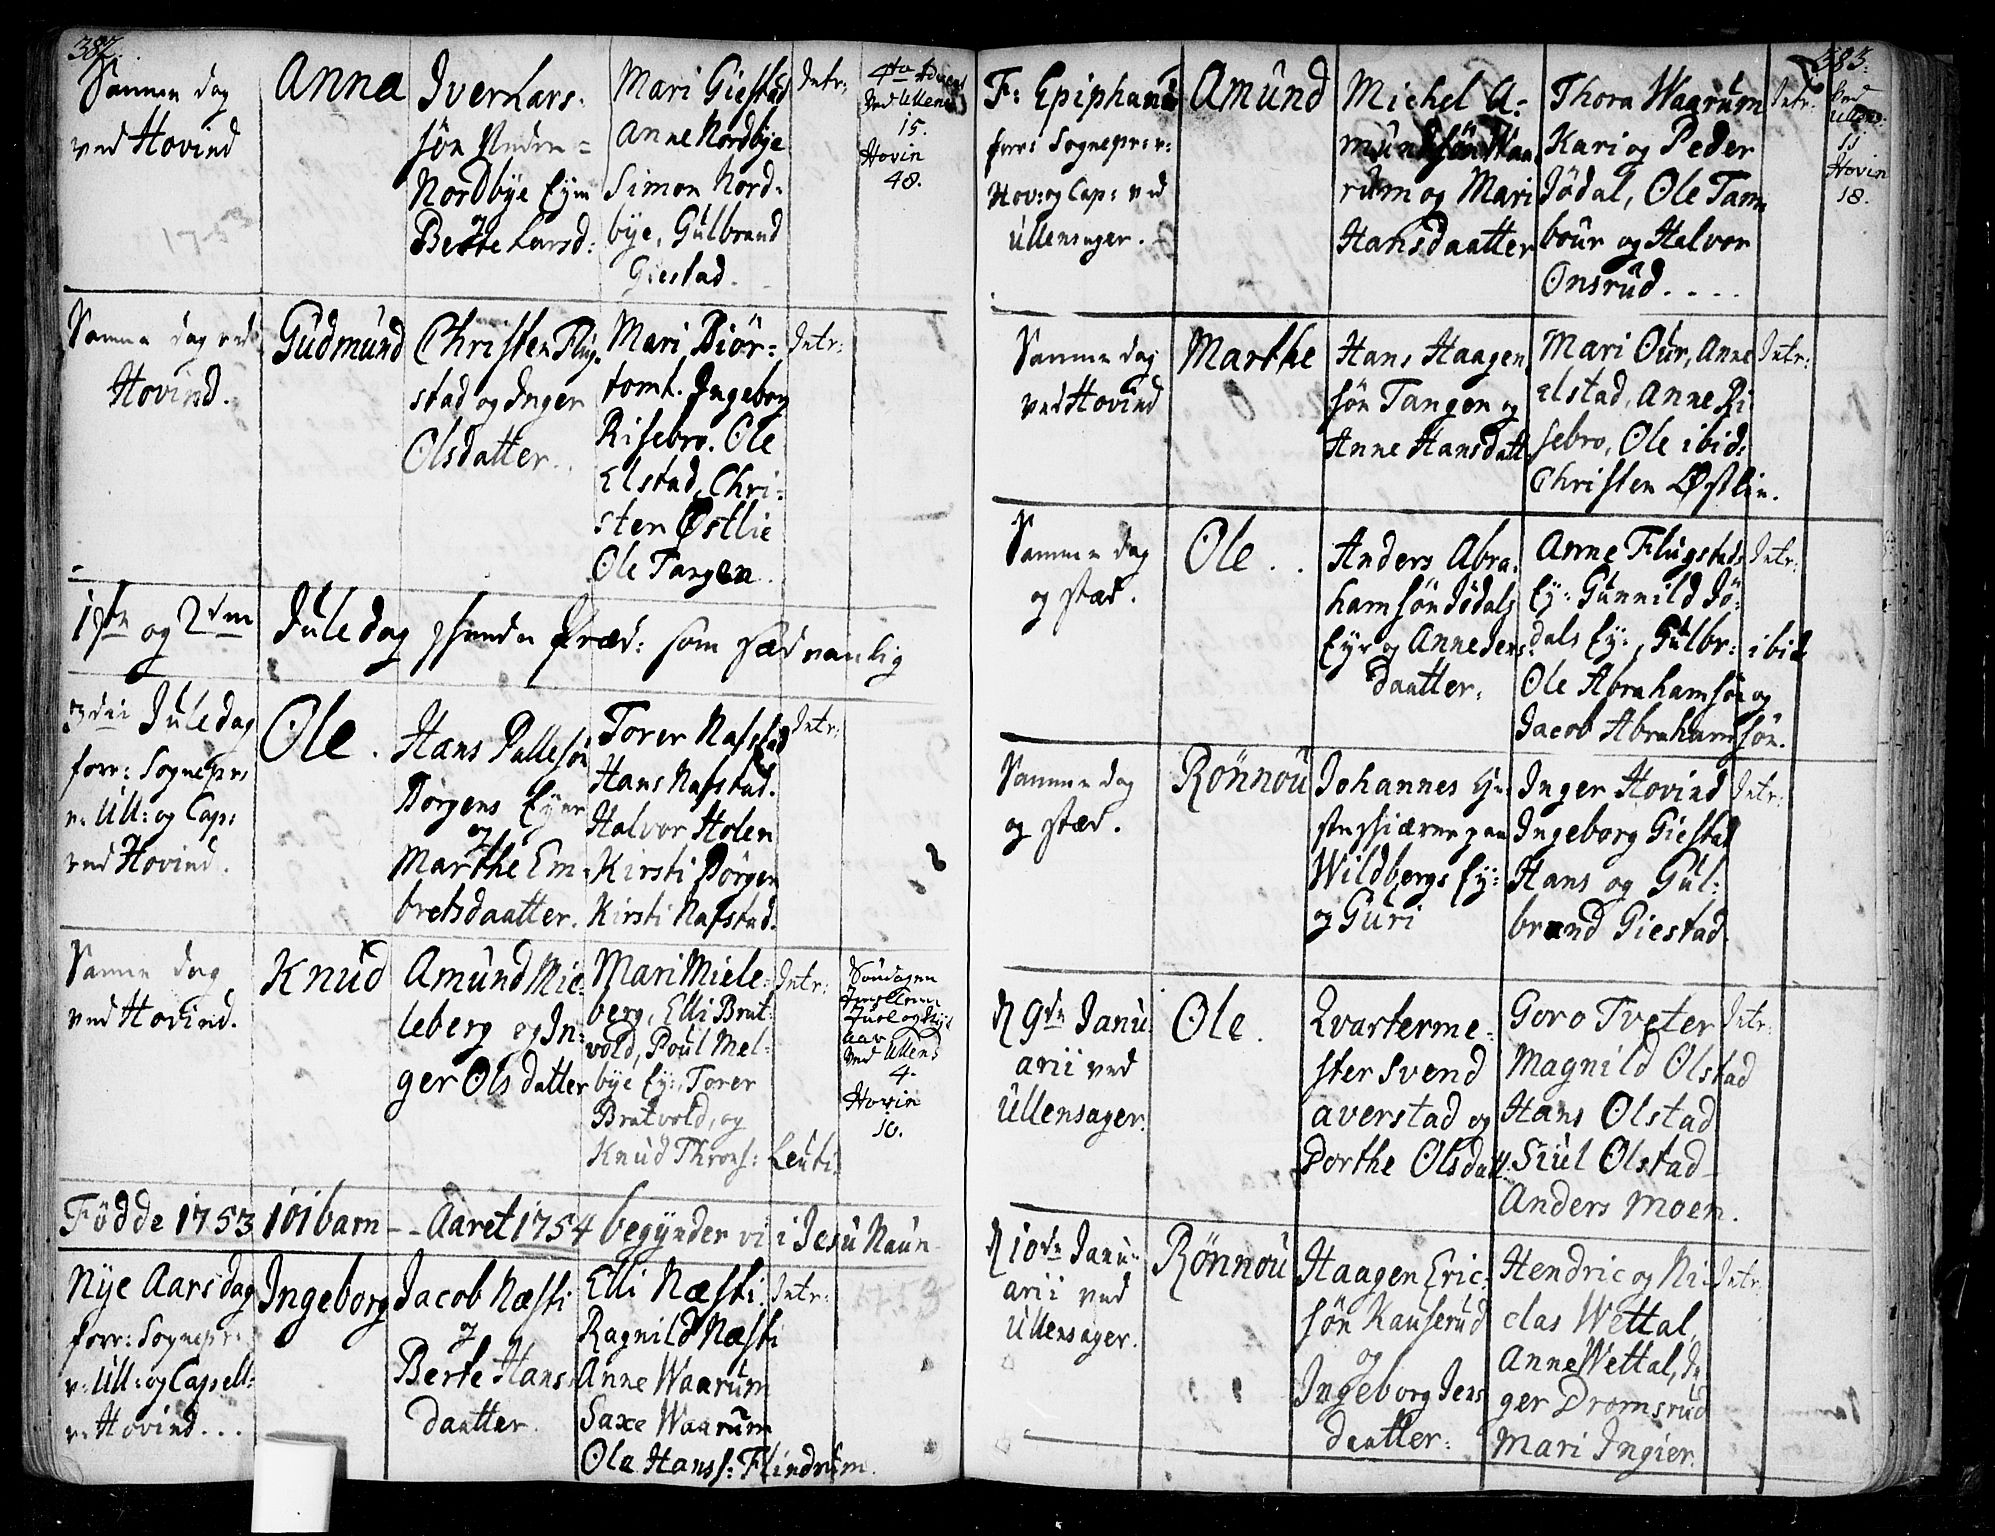 382.
Samme dag
ved Hovind
Anna
Iver Lars-
søn Nedre=
Nordbye Eyer
og
Berte Larsd:
Mari Giestad
Anne Nordbye
Simon Nord-
bye, Gulbrand
Giestad.
Intr:
4de Advent
Ved Ullens
15.
Hovin
48.
Samme dag ved
Hovind.
Gudmund
Christen Flug-
stad og Inger
Olsdatter.
Mari Biör-
tomt. Ingeborg
Risebro. Ole
Elstad, Chri-
sten Østlie
Ole Tangen.
Intr:
1ste og 2den Juledag
Præd: som sædvanlig
3die Juledag
forr: Sognepr:
v. Ull: og Cap:
ved Hovind.
Ole.
Hans Pallesön
Börgens Eyer
og
Marthe Em-
bretsdaatter.
Torer Nafstad
Hans Nafstad.
Halvor Holen
Kirsti Börgen
Kirsti Nafstad.
Intr:
Samme dag
ved Hovind.
Knud
Amund Mie-
leberg og In-
ger Olsdatter
Mari Miele-
berg, Elli Brat-
vold, Poul Mel-
bye Ey:, Torer
Bratvold, og
Knud Throns: Leuti
Intr:
Söndagen
Imellem
Juel og Nyt
aar
Ved Ullens
4.
Hovin
10.
Födde 1753 101 barn - - Aaret 1754 begynder vi i Jesu Naun
Nye Aarsdag
forr: Sognepr:
v. Ull: og Capell:
v. Hovind...
Ingeborg
Jacob Næsti
og
Berte Hans-
daatter.
Elli Næsti.
Ragnild Næsti
Anne Waarum
Saxe Waarum
Ole Hanss: Flindrum.
Intr:
383.
F: Epiphanie
forr: Sognepr: v:
Hov: og Cap: ved
Ullensager.
Amund
Michel A-
mundsön Waa-
rum og Mari
Hansdaatter
Thora Waarum
Kari og Peder
Jödal, Ole Tam-
bour og Halvor
Onsrud....
Intr:
Ved
Ullens:
11
Hovin
18.
Samme dag
ved Hovind
Marthe
Hans Haagen
sön Tangen og
Anne Hansdatt
Mari Our, Anne
Elstad, Anne Ri
sebro, Ole ibid:
Christen Østlin.
Intr:
Samme dag
og stæd.
Ole..
Anders Abra-
hamsön Jödals
Eye og Anne Jens-
daatter.
Anne Flugstads
Ey: Gunnild Jö-
dals Ey:, Gulbr: ibid
Ole Abrahamsön og
Jacob Abrahamsön.
Intr:
Samme dag
og stæd.
Rönnou
Johannes
Wildbergs Ey:
og Guri
Inger Hovind
Ingeborg Giestad
Hans og Gul-
brand Giestad.
Intr:
D 9de Janu-
arii ved
Ullensager.
Ole.
Qvarterme-
ster Svend
Averstad og
Dorthe Olsdatt.
Goro Tveter
Magnild Olstad
Hans Olstad
Siul Olstad
Anders Moen.
Intr:
D 10de Janu-
arii ved
Ullensager.
Rönnou
Haagen Eric-
sön Kauserud
og
Ingeborg Jens
daatter.
Hendric og Ni-
clas Wettal,
Anne Wettal, In
ger Dromsrud
Mari Ingier.
Intr: